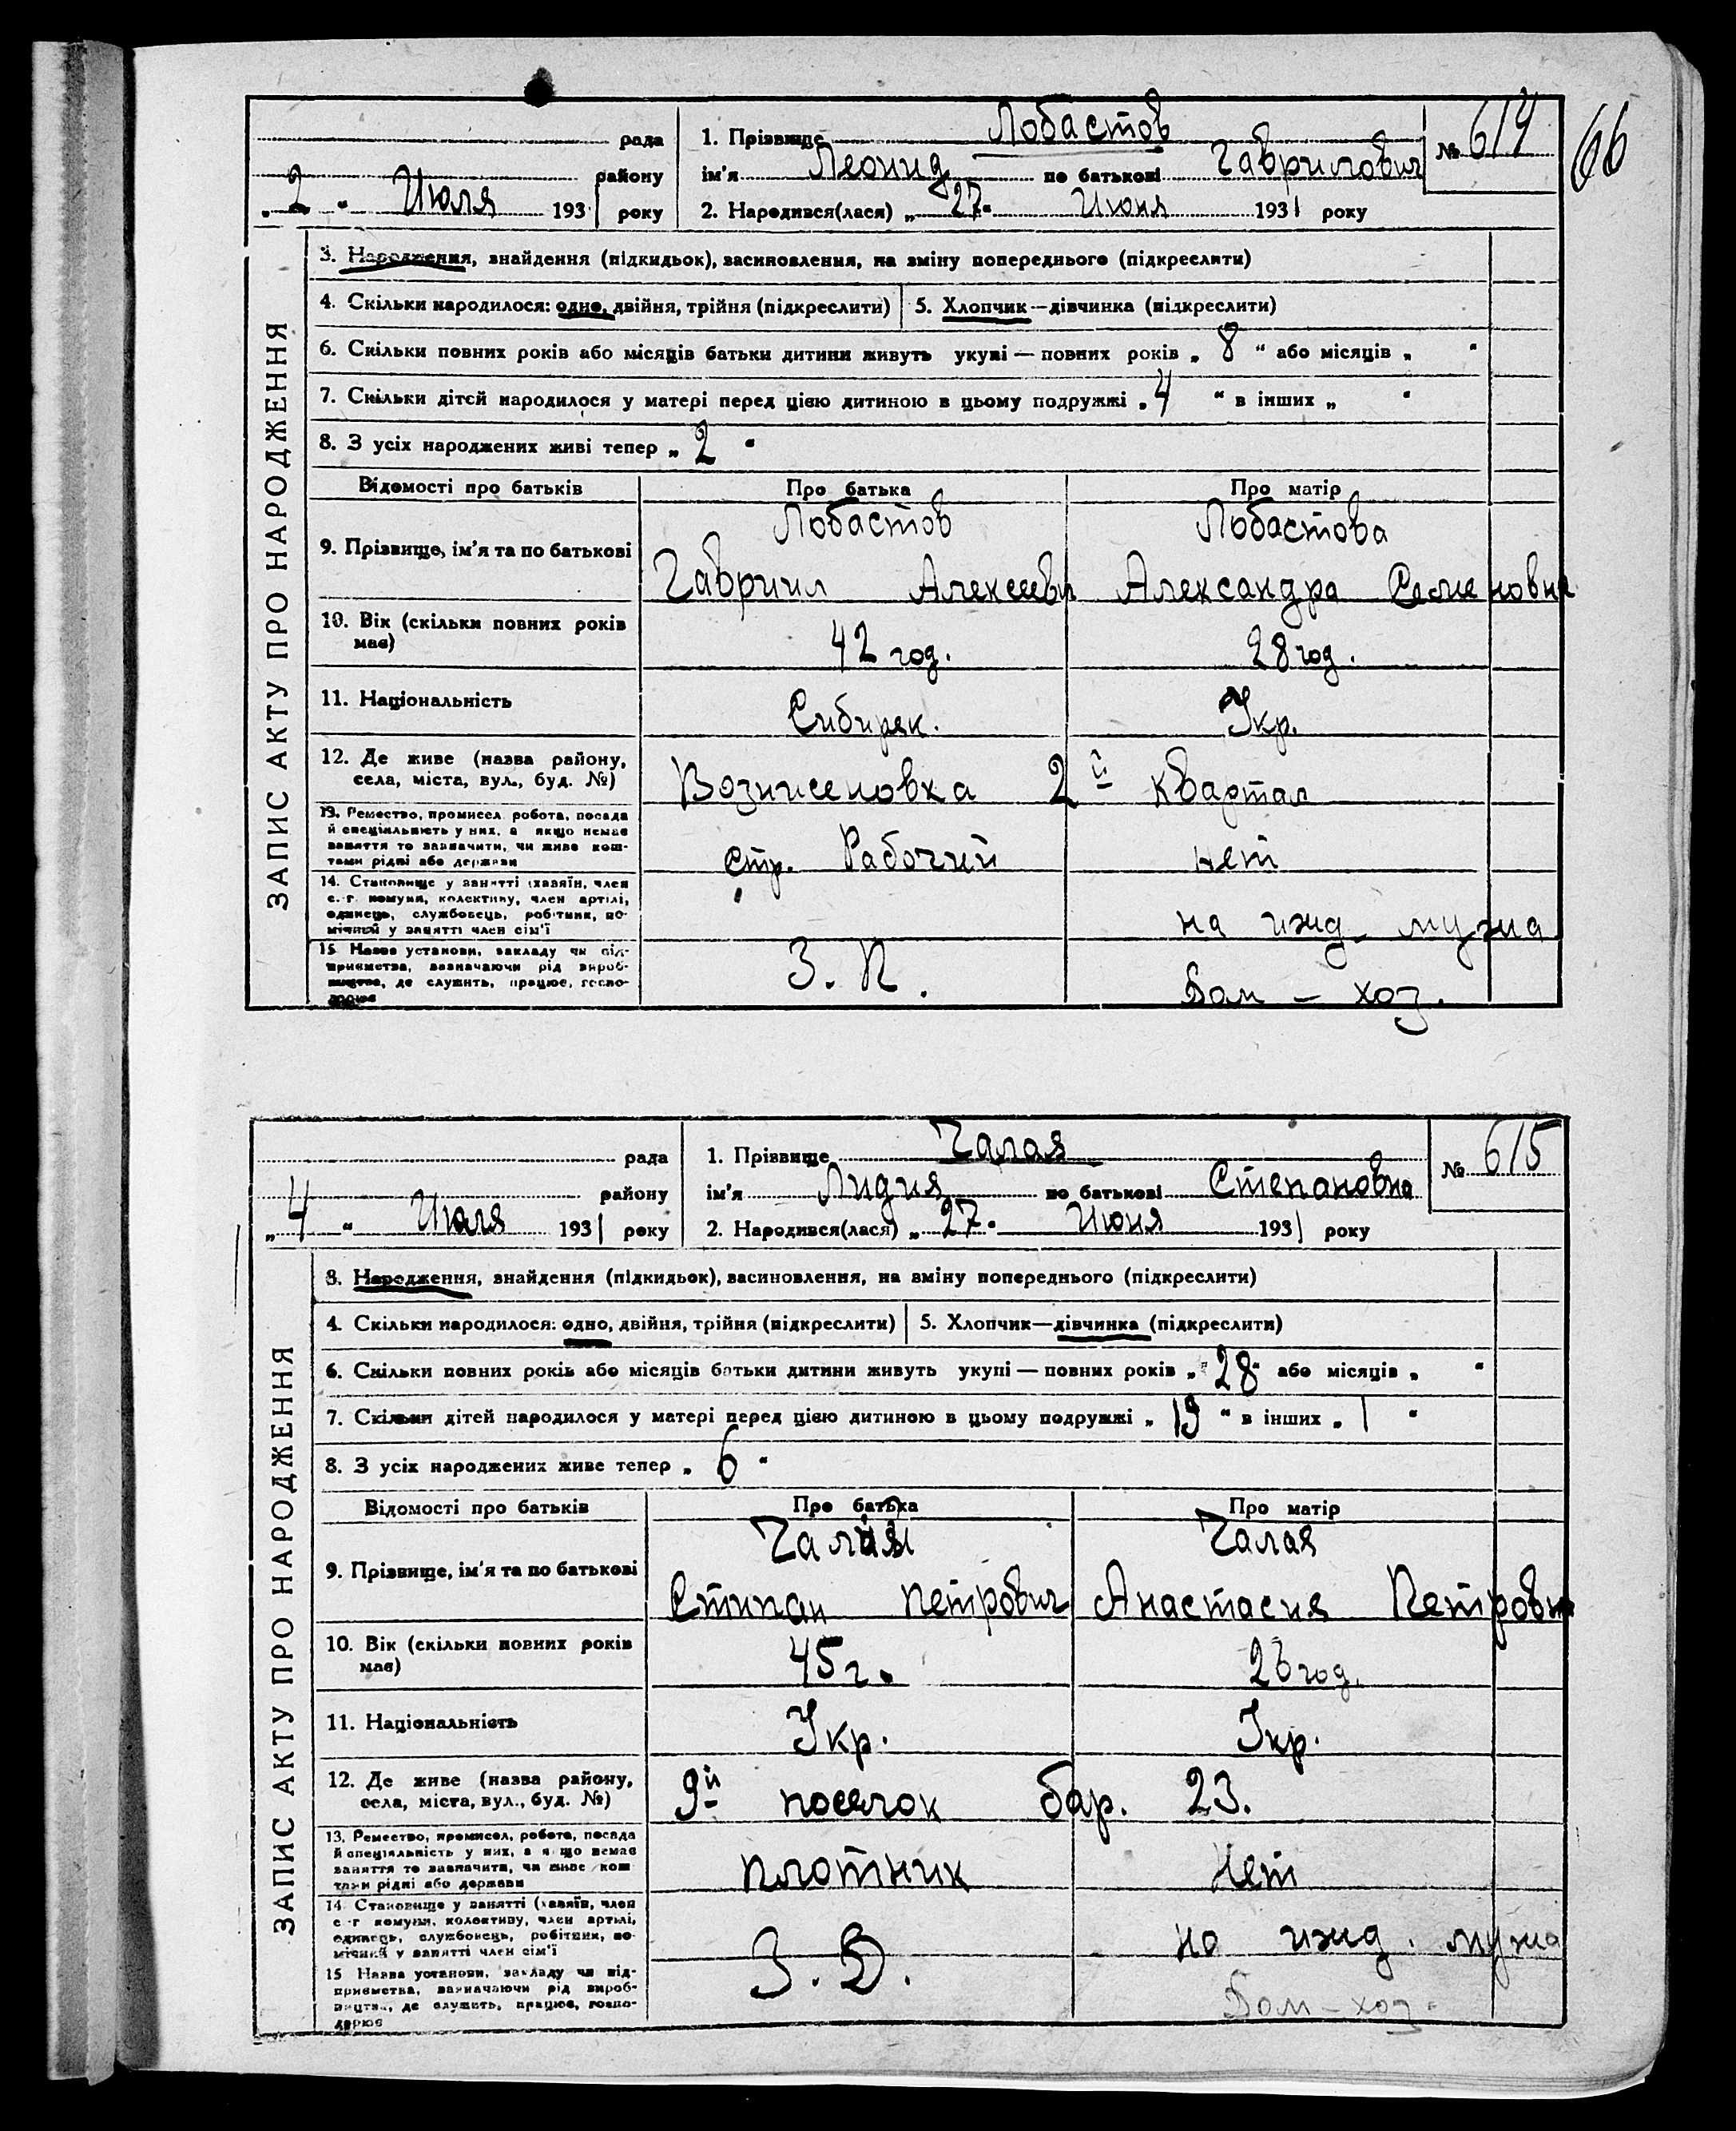 66
рада
1. Прізвище Лобастов
№ 614
району
ім'я Леонид по батькові Гаврилович
„ 2 " Июля 1931 року
2. Народився(лася) „ 27 " Июня 1931 року
ЗАПИС АКТУ ПРО НАРОДЖЕННЯ
3. Народження, знайдення (підкидьок), засиновлення, на зміну попереднього (підкреслити)
4. Скільки народилося: одно, двійня, трійня (підкреслити)
5. Хлопчик—дівчинка (підкреслити)
6. Скільки повних років або місяців батьки дитини живуть укупі — повних років „ 8 " або місяців „ "
7. Скільки дітей народилося у матері перед цією дитиною в цьому подружжі „ 4 " в інших „ "
8. З усіх народжених живі тепер „ 2 "
Відомості про батьків
Про батька
Про матір
9. Прізвище, ім'я та по батькові
Лобастов
Гавриил Алексееви
Лобастова
Александра Семеновна
10. Вік (скільки повних років
має)
42 год.
28 год.
11. Національність
Сибиряк.
Укр.
12. Де живе (назва району,
села, міста, вул., буд. №)
Вознисеновка 2й квартал
13. Ремество, промисел, робота, посада
й спеціяльність у них, а якщо немає
заняття то зазначити, чи живе кош-
тами рідні або держави
стр. Рабочий
нет
14. Становище у занятті (хазяїн, член
с.-г. комуни, колективу, член артілі,
одинець, службовець, робітник, по-
мічний у занятті член сім'ї
на ижд. мужа
15. Назва установи, закладу чи під-
приємства, зазначаючи рід вироб-
ництва, де служить, працює, госпо-
дарює
З. П.
Дом – хоз.
рада
1. Прізвище Чалая
№ 615
району
ім'я Лидия по батькові Степановна
„ 4 " Июля 1931 року
2. Народився(лася) „ 27 " Июня 1931 року
ЗАПИС АКТУ ПРО НАРОДЖЕННЯ
3. Народження, знайдення (підкидьок), засиновлення, на зміну попереднього (підкреслити)
4. Скільки народилося: одно, двійня, трійня (підкреслити)
5. Хлопчик—дівчинка (підкреслити)
6. Скільки повних років або місяців батьки дитини живуть укупі — повних років „ 28 " або місяців „ "
7. Скільки дітей народилося у матері перед цією дитиною в цьому подружжі „ 19 " в інших „ 1 "
8. З усіх народжених живе тепер „ 6 "
Відомості про батьків
Про батька
Про матір
9. Прізвище, ім'я та по батькові
Стипан Петрович
Чалая
Анастасия Петровна
10. Вік (скільки повних років
має)
45 г.
год.
11. Національність
Укр.
Укр.
12. Де живе (назва району,
села, міста, вул., буд. №)
9й поселок бар. 23.
13. Ремество, промисел, робота, посада
й спеціяльність у них, а якщо немає
заняття то зазначити, чи живе кош
тами рідні або держави
плотник
Нет
14. Становище у занятті (хазяїн, член
с.-г. комуни, колективу, член артілі,
одинець, службовець, робітник, по-
мічний у занятті член сім'ї
на ижд. мужа
15. Назва установи, закладу чи від-
приємства, зазначаючи рід вироб-
ництва, де служить, працює, госпо-
дарює
З. В.
Дом – хоз.